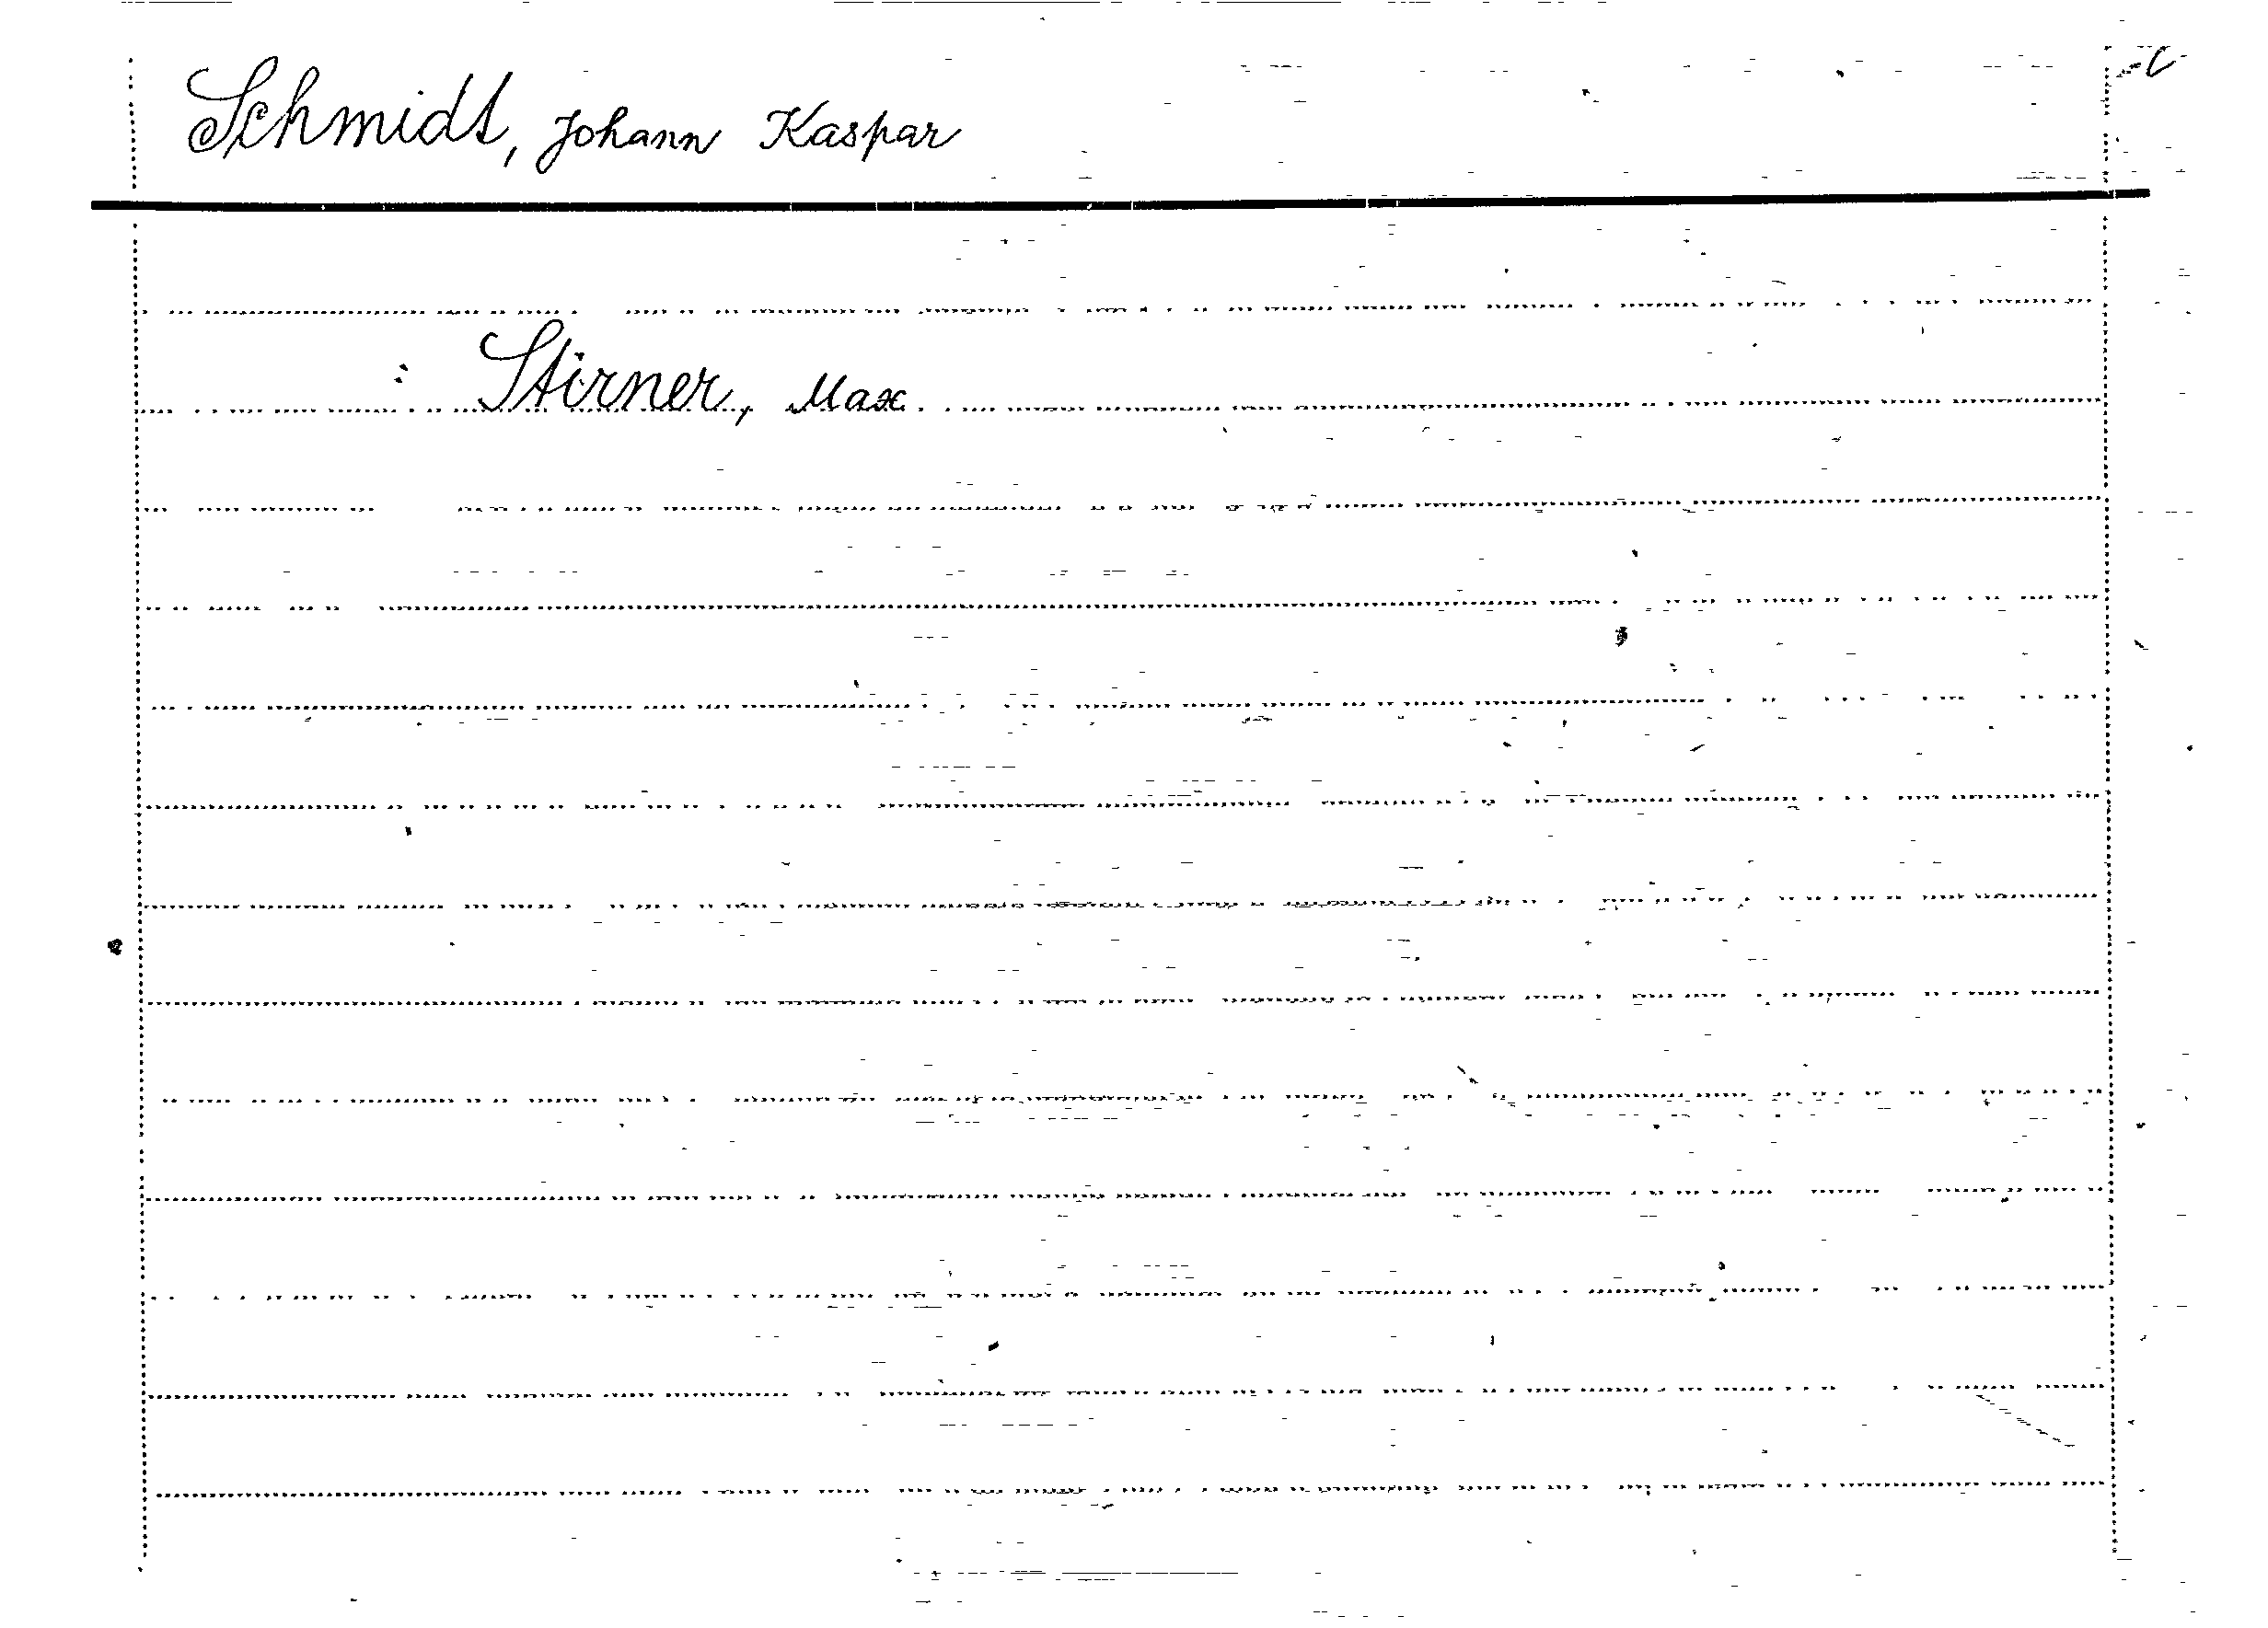 Schmidt, Johann Kaspar
: Stirner, Max